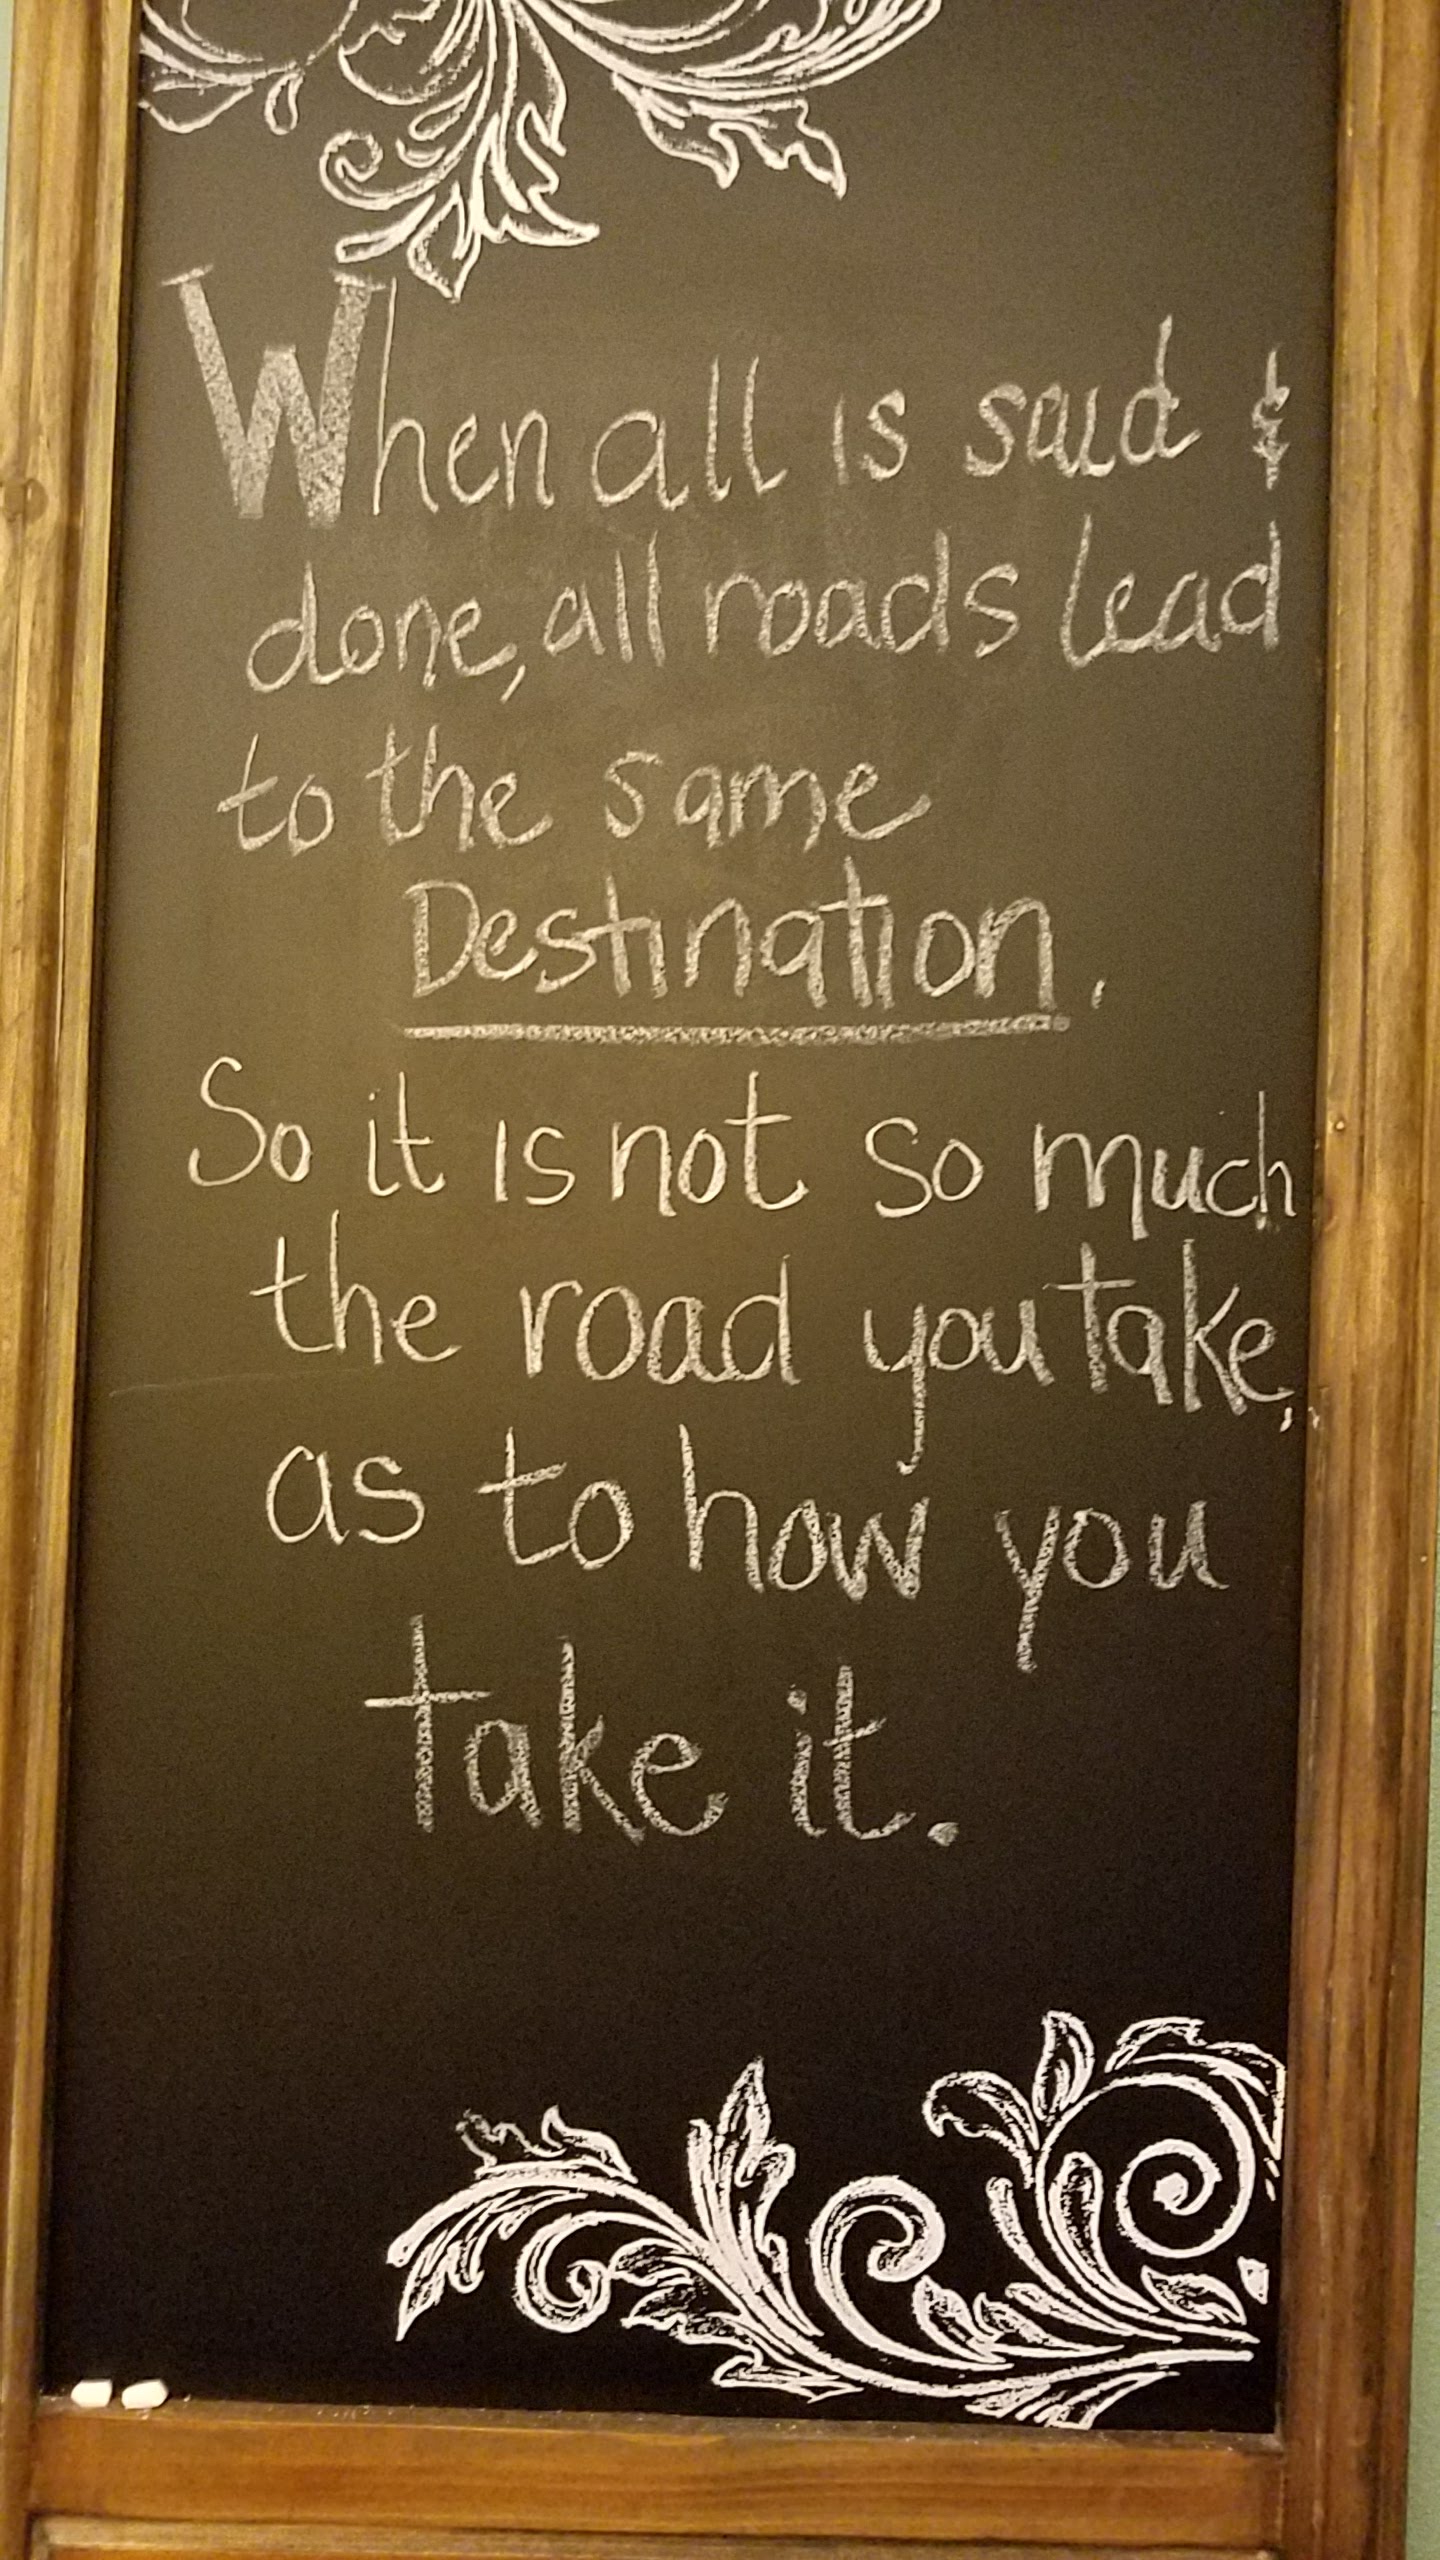 When all is said &
done, all roads lead
to the same
Destination.
So it is not so much
the road you take,
as to how you
take it.